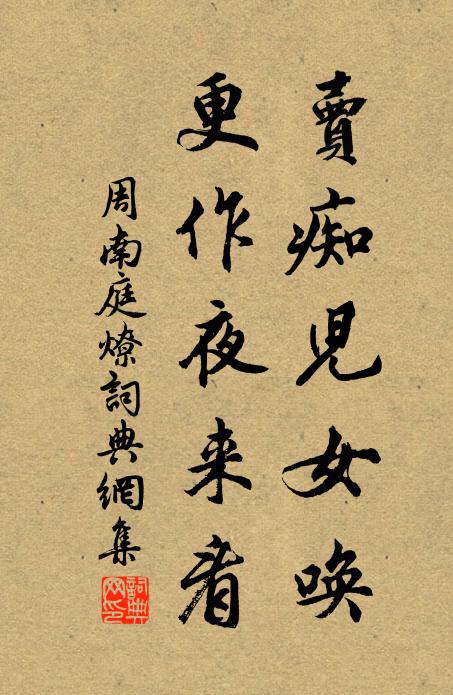 賣痴児女喚
更作夜来看
周南庭燎詞典網集
詞典網印